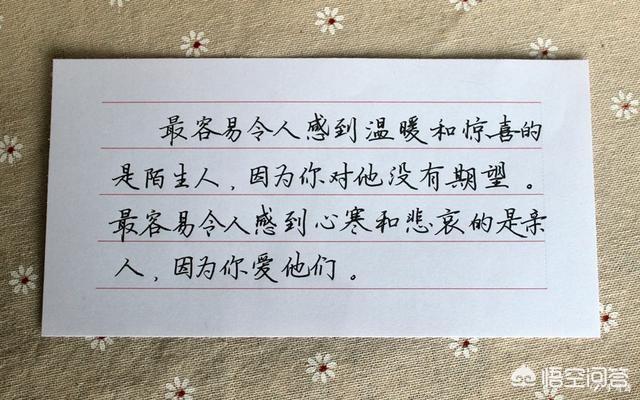 最容易令人感到温暖和惊喜的
是陌生人，因为你对他没有期望。
最容易令人感到心寒和悲哀的是亲
人，因为你爱他们。
悟空问答